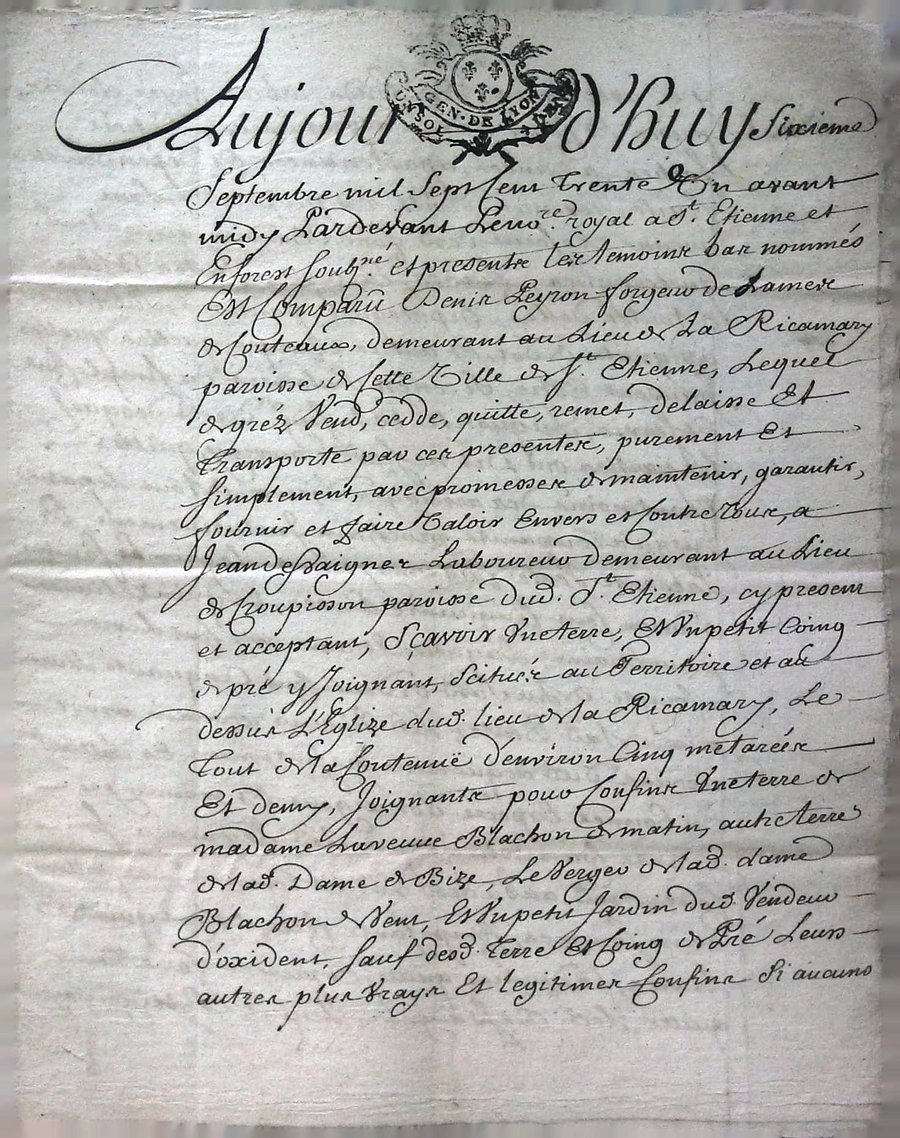 GEN · DE LYON
UN SOL 4 DEN
Aujourd'huy Sixieme
Septembre mil Sept Cent Trente Un avant
midy Pardevant Le no.re royal a St. Etienne et
En forest Soubz.né et presents les temoins bas nommés
Est Comparû Denis Peyron forgeur de Lames
de Couteaux, demeurant au Lieu de La Ricamary
paroisse de Cette Ville de St. Etienne, Lequel
de gréz Vend, cedde, quitte, remet, delaisse Et
Transporte par ces presentes, purement Et
Simplement, avec promesses de maintenir, garantir,
fournir et faire Valoir Envers et Contre Tous, a
Jean deshaignes Laboureur demeurant au Lieu
de Croupisson paroisse dud. St. Etienne, cy present
et acceptant, Sçavoir Une terre, Et Un petit Coing
de pré y Joignant, Scitués au Territoire et au
dessus L'Eglize dud. lieu de la Ricamary, Le
Tout de la Contenuë d'environ Cinq metarées
Et demy, Joignants pour Confins Une terre de
madame La veuve Blachon de matin, autre terre
de lad. Dame de Bize, Le Verger de lad. dame
Blachon de Vent, Et Un petit Jardin dud. Vendeur
d'oxident, Sauf desd. Terre Et Coing de Pré Leurs
autres plus Vrays Et legitimes Confins Si aucuns